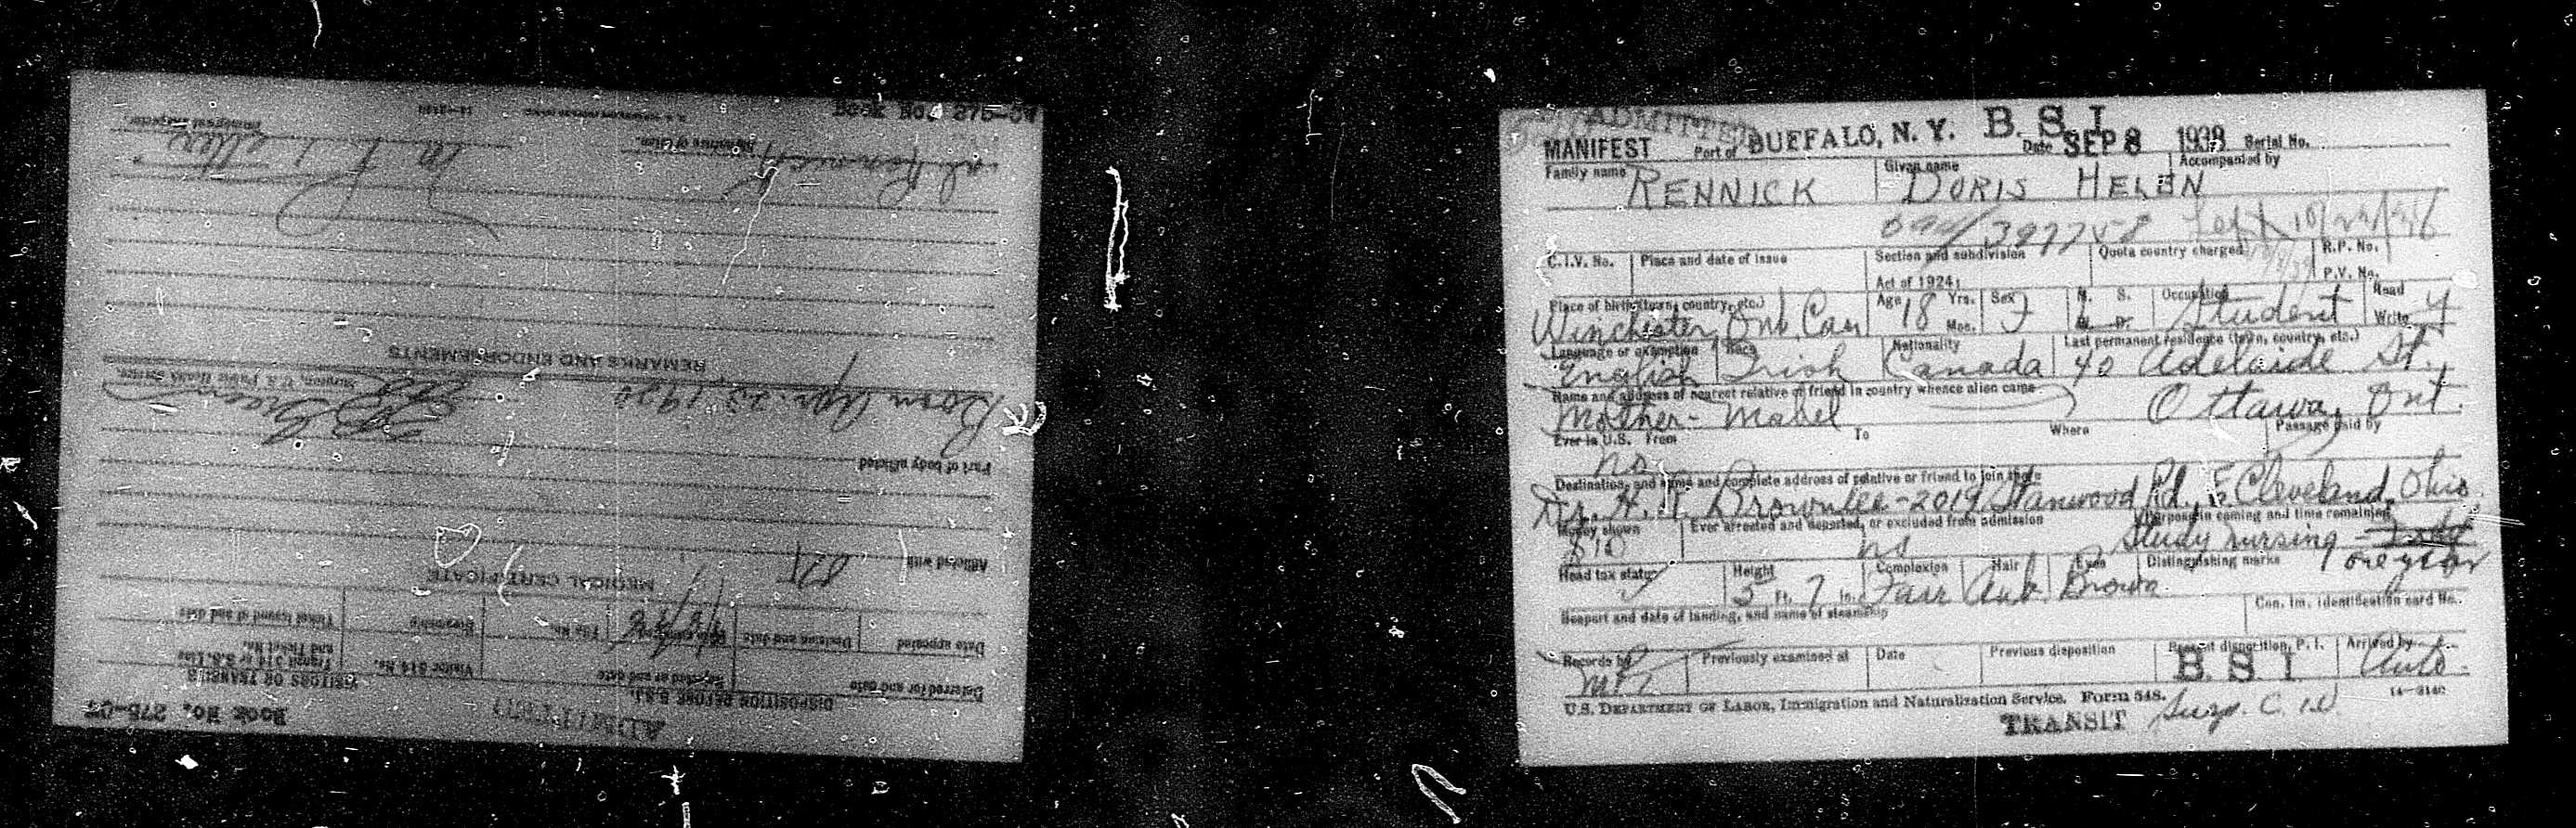 Book No. 275-07
ADMITTED
DISPOSITION BEFORE B.S.I.
VISITORS OR TRANSITS
Deferred for and date
Rejected at and date
Visitor 514 No.
Transit 514 or S.S. Line and Ticket No.
Date appealed
Decision and date
File No.
Steamship
Ticket issued at and date
MEDICAL CERTIFICATE
Afflicted with
Part of body afflicted
Born Apr. 23 1920
Surgeon, U.S. Public Health Service.
REMARKS AND ENDORSEMENTS
Rennick
Signature of alien
Immigrant Inspector.
14-3140
Book No. 275-07
ADMITTED
B. S. I.
MANIFEST Port of BUFFALO, N. Y. Date SEP 8 1938 Serial No.
Family name RENNICK Given name DORIS HELEN Accompanied by
C.I.V. No. Place and date of issue Section and subdivision Act of 1924 Quota country charged R.P. No. P.V. No.
Place of birth (town, country, etc.) Winchester, Ont. Can Age 18 Yrs. Mos. Sex F M. S. W. D. Occupation Student Read Write y
Language or exemption English Race Irish Nationality Canada Last permanent residence (town, country, etc.) 40 Adelaide St.
Name and address of nearest relative or friend in country whence alien came
Mother - Mabel Ottawa, Ont.
Ever in U.S. From To Where Passage paid by
no
Destination, and name and complete address of relative or friend to join there
Dr. H. F. Brownlee - 2019 Stanwood Rd., E. Cleveland, Ohio.
Money shown $10 Ever arrested and deported, or excluded from admission no Purpose in coming and time remaining
Study nursing - one year
Head tax status Height 5 Ft. 7 In. Complexion Fair Hair Aub. Eyes Brown Distinguishing marks
Seaport and date of landing, and name of steamship Con. Im. Identification card No.
Records by Previously examined at Date Previous disposition Present disposition, P. I. B. S. I. Arrived by Auto.
U.S. DEPARTMENT OF LABOR, Immigration and Naturalization Service. Form 548. 14-3140
TRANSIT